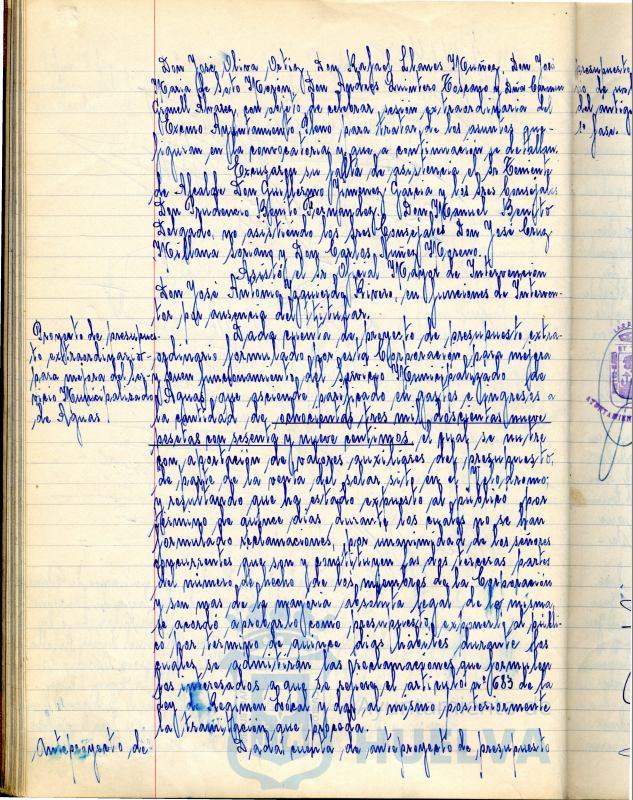 Don José Oliva Ortiz, Don Rafael Llanes Muñoz, Don José
María de Soto Morón, Don Andrés Quintero Toscano y Doña Carmen
Alvarez, con objeto de celebrar sesión extraordinaria del
Excmo Ayuntamiento Pleno para tratar de los asuntos que
figuran en la convocatoria y que a continuación se detallan
Excusaron su falta de asistencia el Sr Teniente
de Alcalde Don Guillermo Jimenez Garcia y los Sres Concejales
Don Prudencio Benito Fernandez y Don Manuel Benito
Delgado, no asistiendo los Sres Concejales Don José Cruz
Millana Soriano y Don Carlos Nuñez Moreno.
Asistió el Sr Oficial Mayor de Intervención
Don José Antonio Izquierdo Rivero, en funciones de Interven-
tor por ausencia del titular.
Proyecto de presupues-
to extraordinario
para mejora del Ser-
vicio Municipalizado
de Aguas
Dada cuenta de proyecto de presupuesto extra-
ordinario formulado por esta Corporación para mejora
y buen funcionamiento del Servicio Municipalizado de
Aguas que asciende nivelado en gastos e ingresos a
la cantidad de ochocientas tres mil doscientas nueve
pesetas con sesenta y nueve centimos, el cual se nutre
con aportación de valores auxiliares de presupuesto,
de parte de la venta del solar sito en el Velodromo;
y resultando que ha estado expuesto al publico por
termino de quince dias durante los cuales no se han
formulado reclamaciones, por unanimidad de los señores
concurrentes que son y constituyen las dos terceras partes
del número de hecho de los miembros de la Corporación
y son mas de la mayoria absoluta legal de la misma,
se acordó aprobarlo como presupuesto y exponerlo al públi-
co por termino de quince dias habiles durante los
cuales se admitirán las reclamaciones que formulen
los interesados a que se refiere el articulo nº 683 de la
Ley de Regimen Local y dar al mismo posteriormente
la tramitación que proceda.
Anteproyecto de
Dada cuenta de anteproyecto de presupuesto
presupuesto
del antiguo
1ª fase.
HUELVA